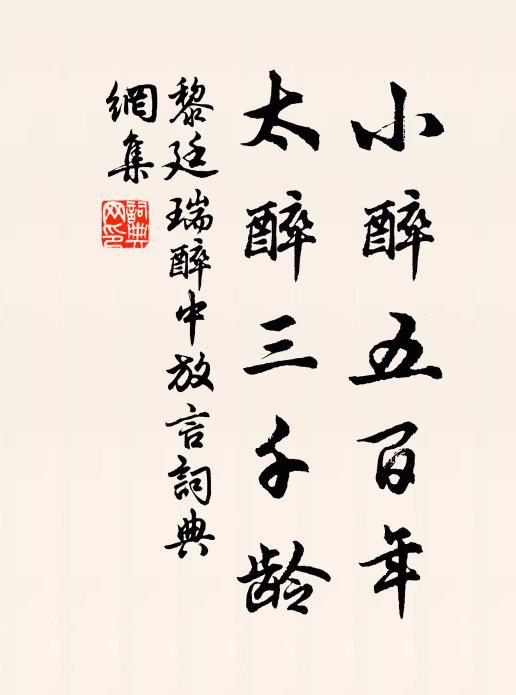 小醉五百年
太醉三千龄
黎廷瑞醉中放言詞典
網集
詞典
网印